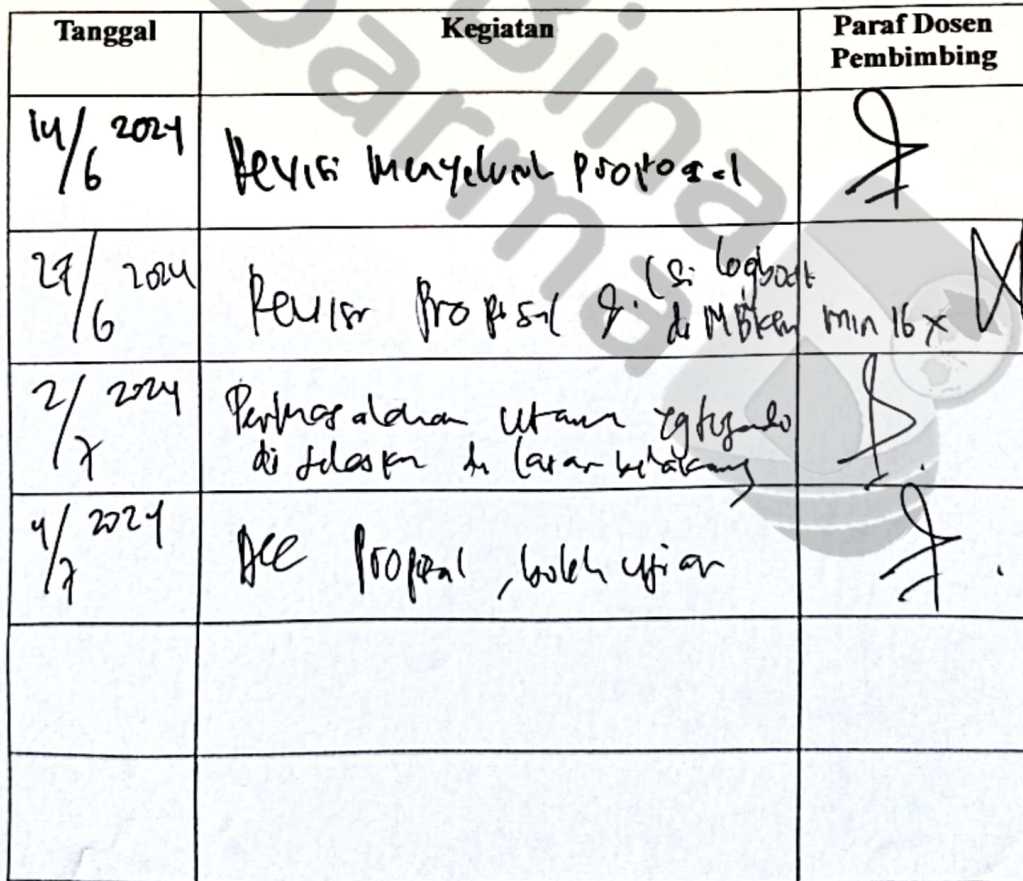 Bina
Darma
Tanggal
Kegiatan
Paraf Dosen
Pembimbing
14/6 2024
Revisi Menyeluruh proposal
27/6 2024
Revisi Proposal & isi logbook
di MBKM min 16 x
2/7 2024
Permasalahan utama
di jelaskan di latar belakang
4/7 2024
ACC Proposal, boleh ujian